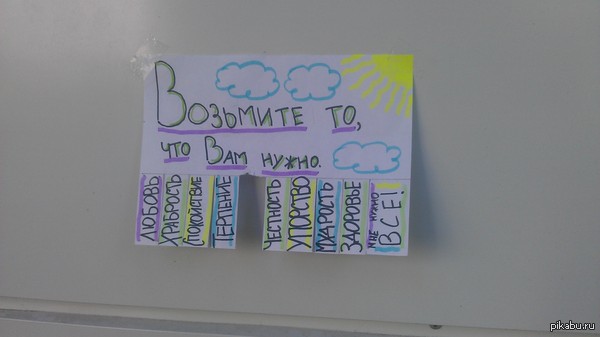 Возьмите то,
что Вам нужно.
ЛЮБОВЬ
ХРАБРОСТЬ
СПОКОЙСТВИЕ
ТЕРПЕНИЕ
ЧЕСТНОСТЬ
УПОРСТВО
МУДРОСТЬ
ЗДОРОВЬЕ
МНЕ НУЖНО
ВСЕ!
pikabu.ru